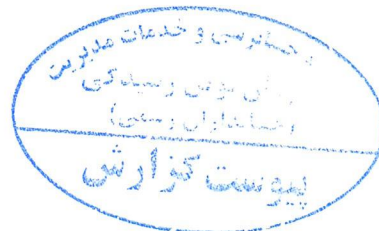 حسابرسی و خدمات مدیریت
رسیدگی
(حسابداران رسمی)
پیوست گزارش